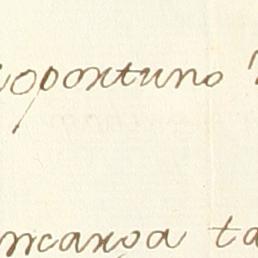 oportuno
ncarga ta